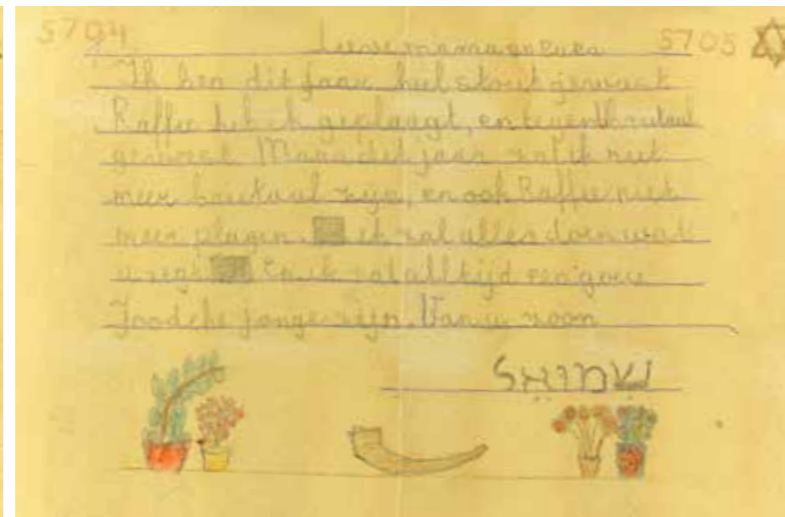 5704 5705
Lieve mama en
Ik ben dit jaar heel stout geweest
Raffie heb ik geplaagd, en tegen brutaal
geweest. Maar dit jaar zal ik niet
meer brutaal zijn, en ook Raffie niet
meer plagen. ik zal alles doen wat
u zegt En ik zal altijd een goeie
Joodche jonge zijn. Van u zoon
שמואל